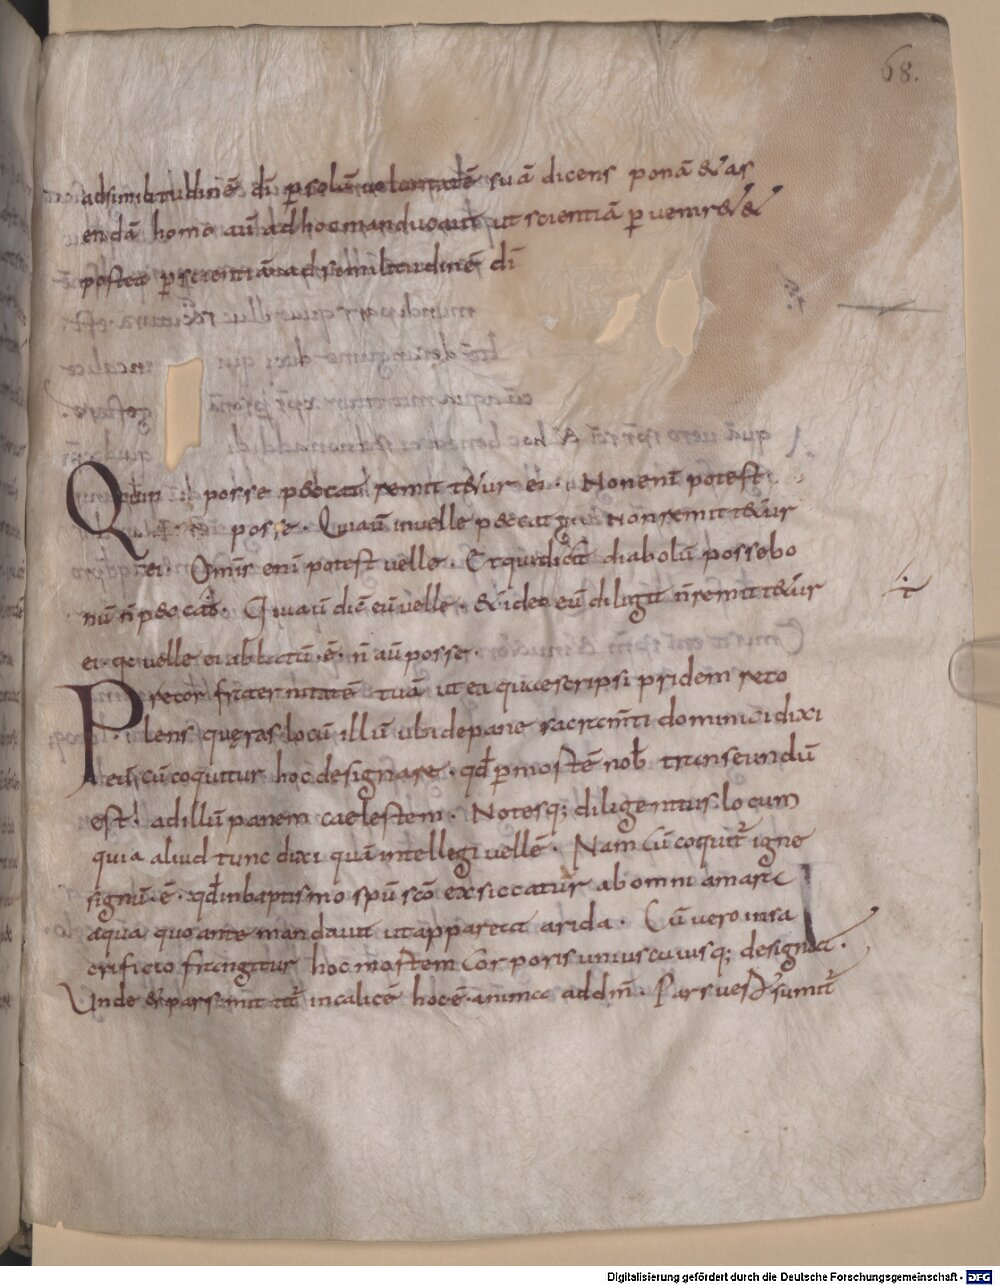 68.
adsimilitudinē dī p solū uoluntatē suā dicens ponā & as
endā homo aū ad hoc manducauit ut scientiā p uenir& &
postea p scientiā ad similitudinē dī
Qui in posse peccat remit t&ur ei. Non enī potest
posse. Qui aū in uelle peccat non remit t&ur
ei. Omīs enī potest uelle. Et qui dicit diabolū posse bo
nū n̄ p&cat. Qui aū dic̄ eū uelle. & ideo eū diligit n̄ remit t&ur
ei. qe uelle ei ablatū .ē. n̄ aū posse.
Precor fraternitatē tuā ut ea quae scripsi pridem reco
lens quęras locū illū ubi de pane sacramti dominici dixi
eū cū coquitur hoc designare. qd̄ p mortē nob̄ transeundū
est ad illū panem caelestem. Notesq; diligentius locum
quia aliud tunc dixi quā intellegi uellē. Nam cū coquit̄ igne
signū .ē. qd̄ in baptismo spū scō exsiccatur ab omni amara
aqua quo ante mandauit ut appareat arida. Cū uero in sa
crificio frangitur hoc mortem corporis unius cuiusq; designat.
Unde & pars mit tit̄ in calicē hoc .ē. anima ad dm̄. Pars uero sumit̄
Digitalisierung gefördert durch die Deutsche Forschungsgemeinschaft - DFG